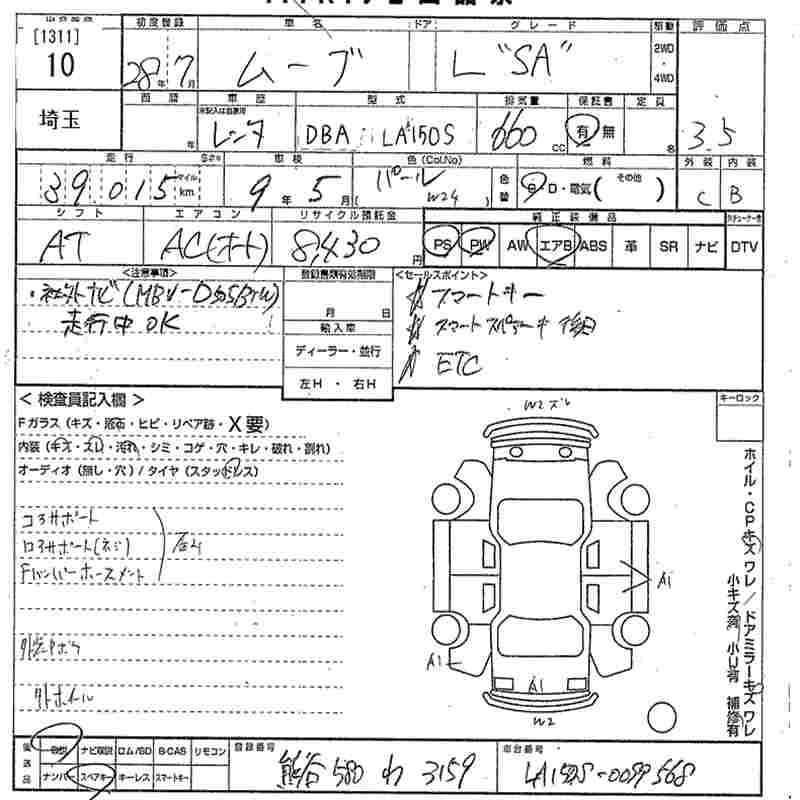 [1311]
10
埼玉
初度登録 車名 ドア グレード 駆動 評価点
28年7月 ムーブ L "SA" 2WD 4WD
3.5
西暦 年 車歴 型式 排気量 保証書 定員
未記入は自家用
レンタ DBA LA150S 660 cc 有 無 名
外装 内装
C B
走行 車検 色(Col.No) 燃料
39015 マイル km 9年5月 パール (W24) 色替 G・D・電気( その他 )
シフト エアコン リサイクル預託金 純正装備品
AT AC(オート) 8,430円 PS PW AW エアB ABS 革 SR ナビ DTV
<注意事項>
・社外ナビ(
走行中OK
登録書類有効期限
月 日
輸入車
ディーラー・並行
左H ・ 右H
<セールスポイント>
スマートキー
ETC
<検査員記入欄>
Fガラス(キズ・飛石・ヒビ・リペア跡・X要)
内装(キズ・スレ・汚れ・シミ・コゲ・穴・キレ・破れ・割れ)
オーディオ(無し・穴)/タイヤ(スタッドレス)
コアサポート
ロアサポート(ネジ)
Fバンパーホースメント
外ホイル
キーロック
W2 ズレ
A1
A1
A1
W2
ホイル・CPキズ ワレ/ドアミラーキズ ワレ
小キズ有 小U有 補修有
後送品
取説 ナビ取説 ロム/SD B-CAS リモコン
ナンバー スペアキー キーレス スマートキー
登録番号
熊谷 580 わ 3159
車台番号
LA150S-0099568